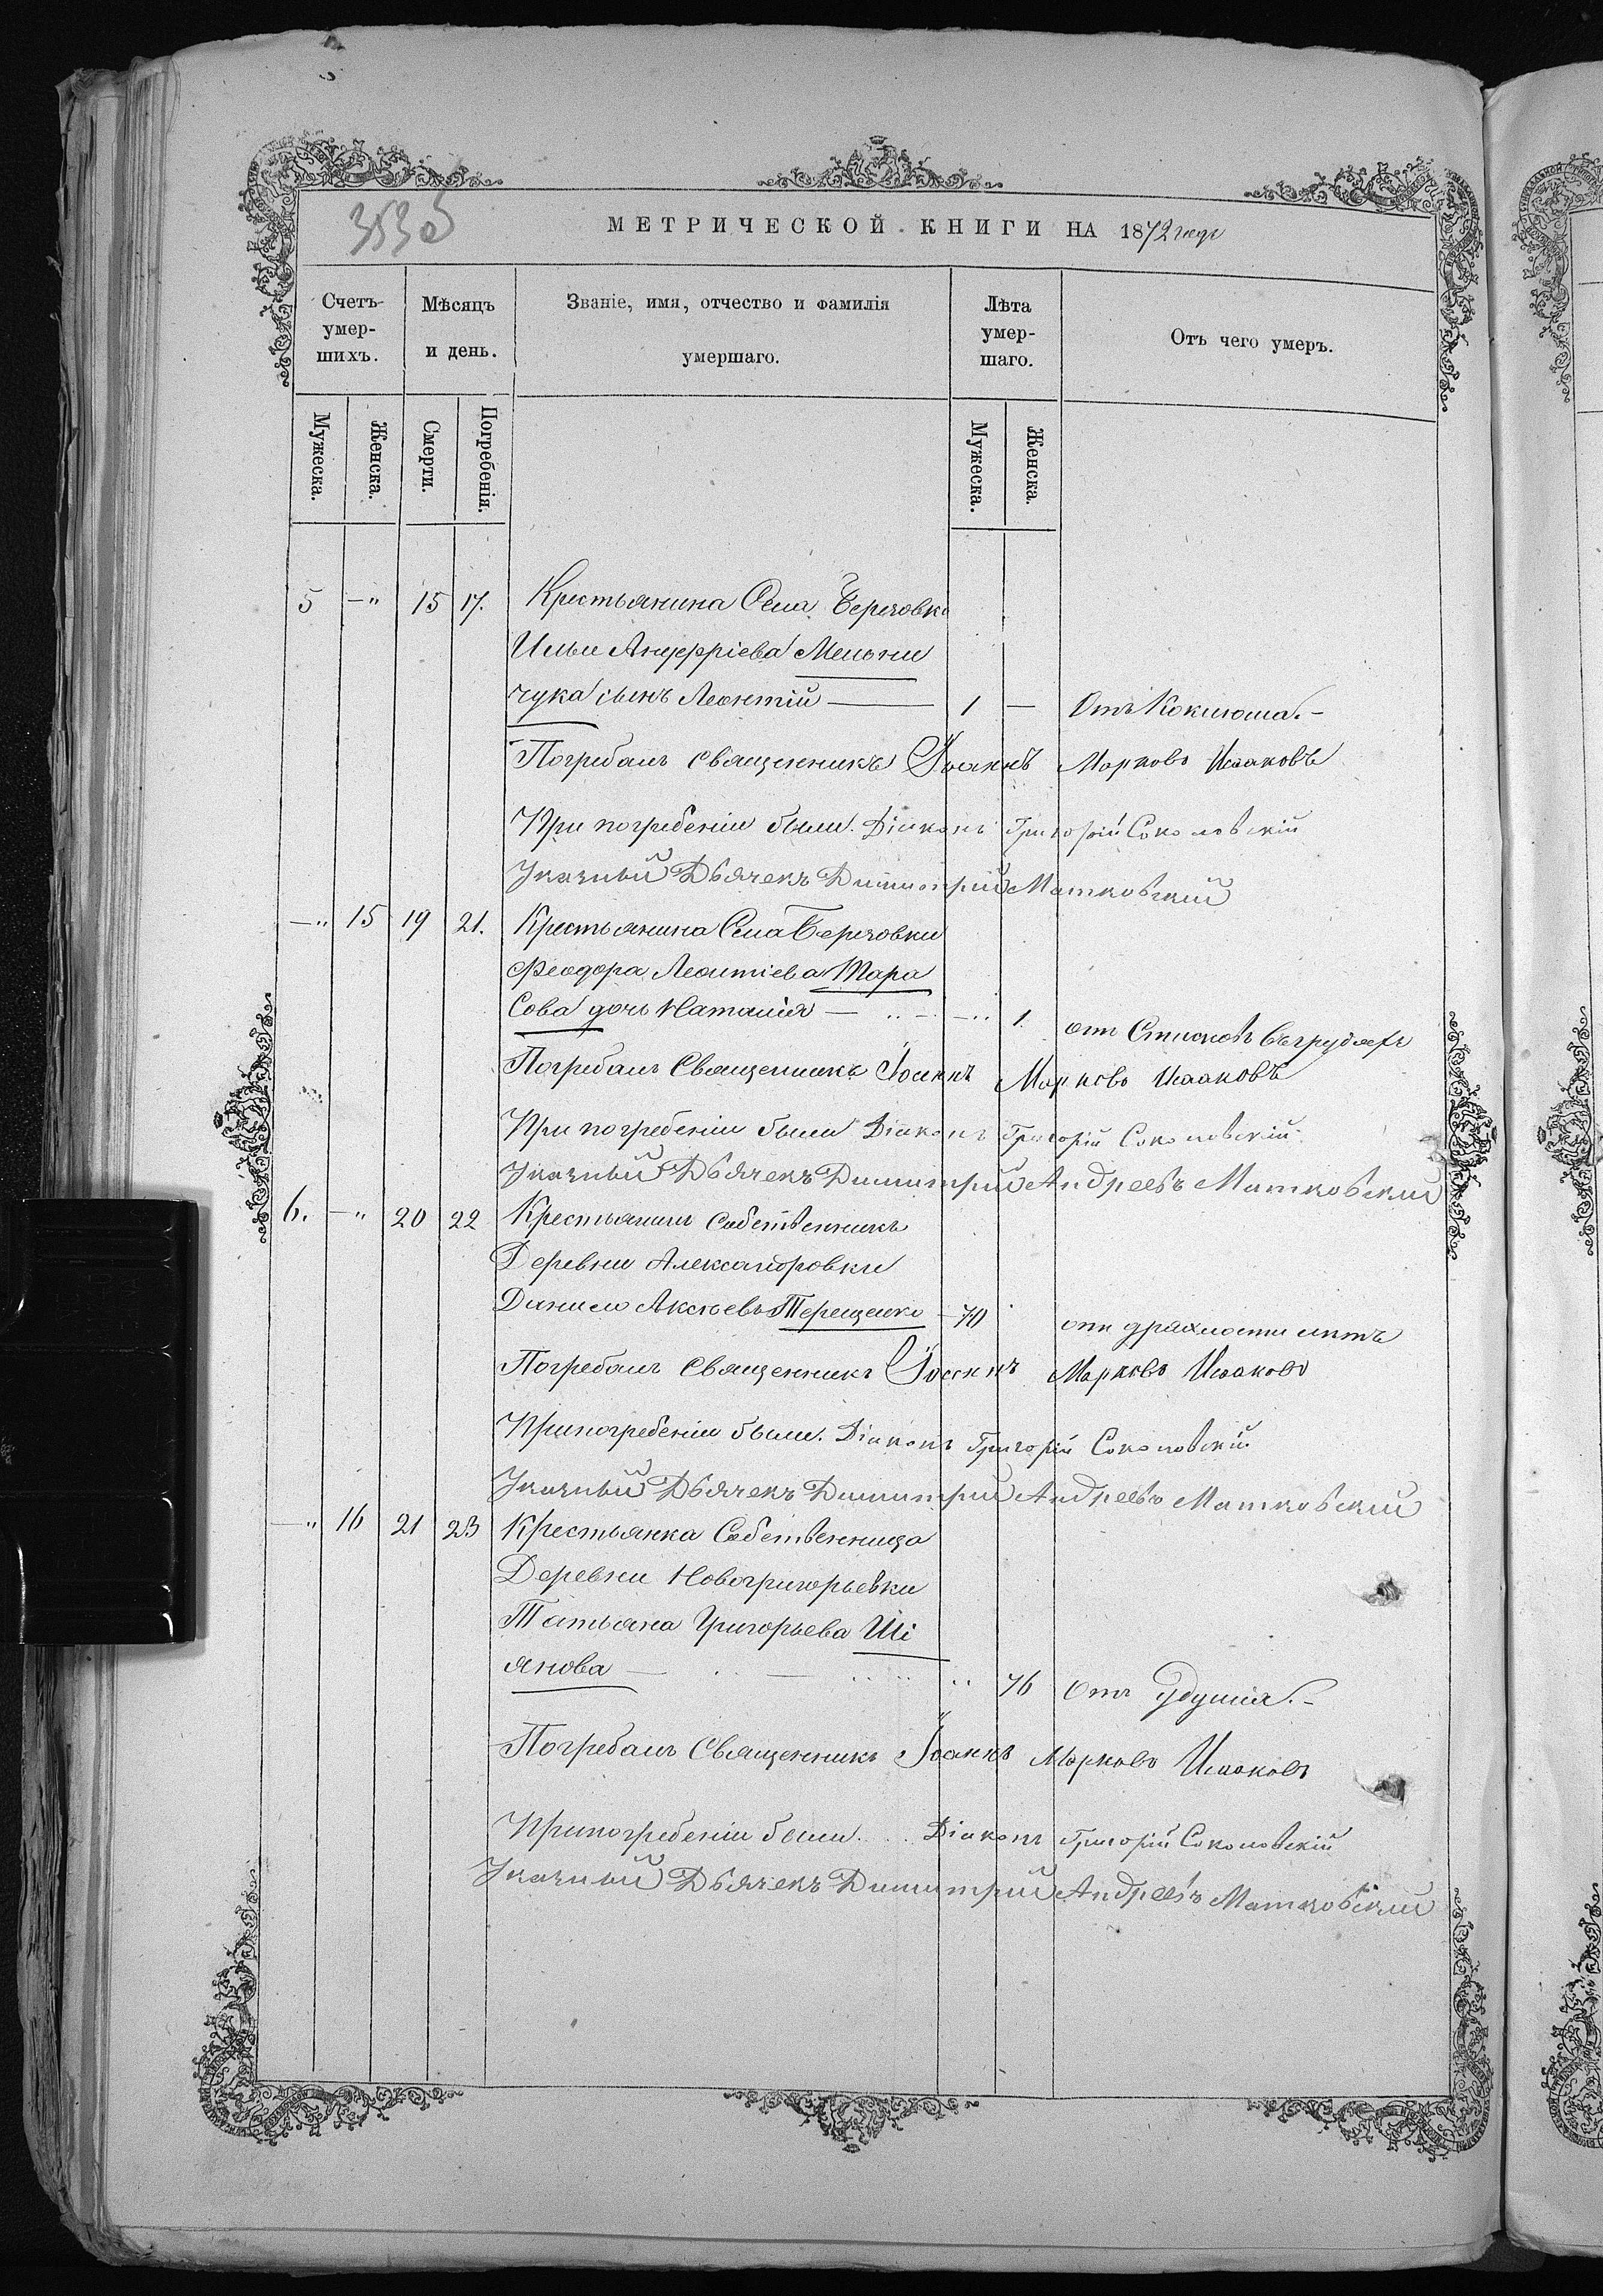 353об
МЕТРИЧЕСКОЙ КНИГИ НА 1872 годъ
Счетъ умер-шихъ.
Мѣсяцъ и день.
Званіе, имя, отчество и фамилія умершаго.
Лѣта умер-шаго.
Отъ чего умеръ.
Мужеска.
Женска.
Смерти.
Погребенія.
Мужеска.
Женска.
5 -" 15 17. Крестьянина Села Березовки
Ильи Ануфріева Мельни
чука сынъ Леонтій — 1 — Отъ Коклюша.-
Погребалъ Священникъ Іоаннъ Марковъ Исааковъ
При погребеніи были. Діаконъ Григорій Соколовскій
Указный Дьячекъ Димитрій Матковский
-" 15 19 21. Крестьянина Села Березовки
Феодора Леонтіева Тара
сова дочь Наталія — 1. отъ Стисковъ въ грудяхъ
Погребалъ Священникъ Іоаннъ Марковъ Исааковъ
При погребеніи были Діаконъ Григорій Соколовскій
Указный Дьячекъ Димитрий Андреевъ Матковский
6. -" 20 22 Крестьянинъ Собственникъ
Деревни Александровки
Данило Терещенко - 70 отъ драхлости лѣтъ
Погребалъ Священникъ Іоаннъ Марковъ Исааковъ
При погребеніи были. Діаконъ Григорій Соколовскій
Указный Дьячекъ Димитрий Андреевъ Матковский
-" 16 21 23 Крестьянка Собственница
Деревни Новогригорьевки
Татьяна Григорьева Ші
янова — 76 Отъ удушія.-
Погребалъ Священникъ Іоаннъ Марковъ Исааковъ
При погребеніи были. Діаконъ Григорій Соколовскій
Указный Дьячекъ Димитрий Андреевъ Матковский